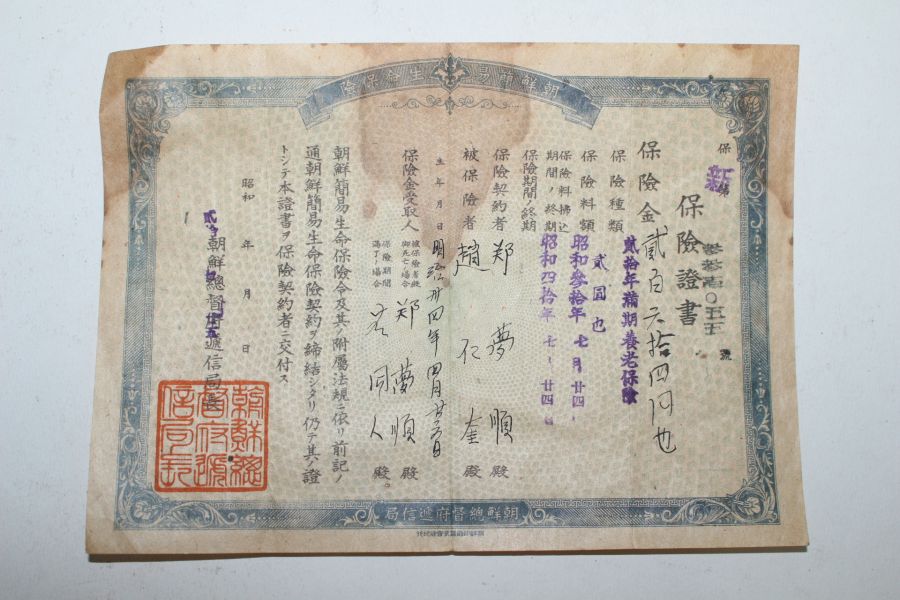 朝鮮簡易生命保險
保險證書
新
保險金 貳百六拾四円也
保險種類 貳拾年滿期養老保險
保險料額 貳圓也
保險料拂込期間ノ終期 昭和參拾年七月廿四
保險期間ノ終期 昭和四拾年七、廿四日
保險契約者 郑 夢 順 殿
被保險者 趙 仁 奎 殿
生年月日 明治卅四年四月
保險金受取人
被保險者死亡ノ場合 郑 夢 順 殿
保險期間滿了ノ場合 右 同 人 殿。
朝鮮簡易生命保險令及其ノ附屬法規ニ依リ前記ノ
通朝鮮簡易生命保險契約ヲ締結シタリ仍テ其ノ證
トシテ本證書ヲ保險契約者ニ交付ス
昭和 年 月 日
朝鮮總督府遞信局長
朝鮮總督府遞信局長
朝鮮總督府遞信局